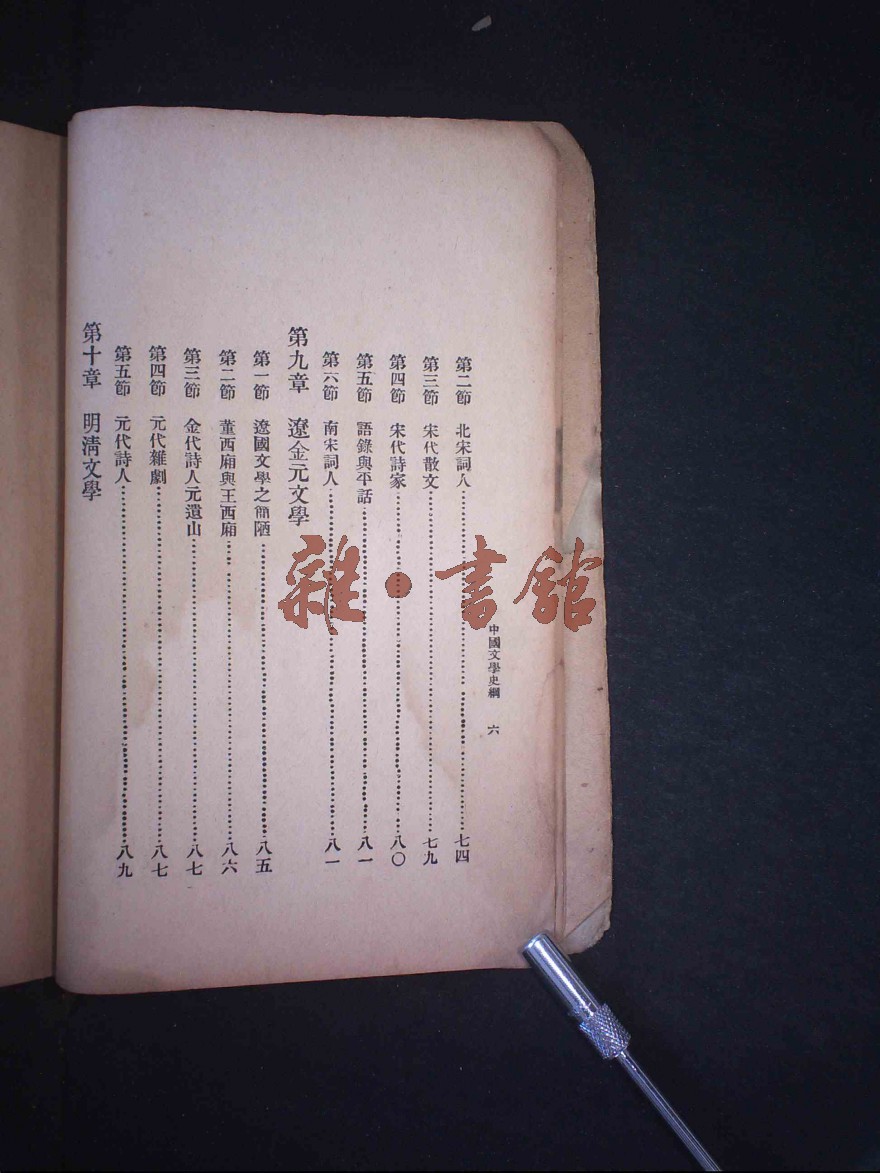 中國文學史綱 六
第二節 北宋詞人……七四
第三節 宋代散文……七九
第四節 宋代詩家……八〇
第五節 語錄與平話……八一
第六節 南宋詞人……八一
第九章 遼金元文學
第一節 遼國文學之簡陋……八五
第二節 董西廂與王西廂……八六
第三節 金代詩人元遺山……八七
第四節 元代雜劇……八七
第五節 元代詩人……八九
第十章 明清文學
雜·書館